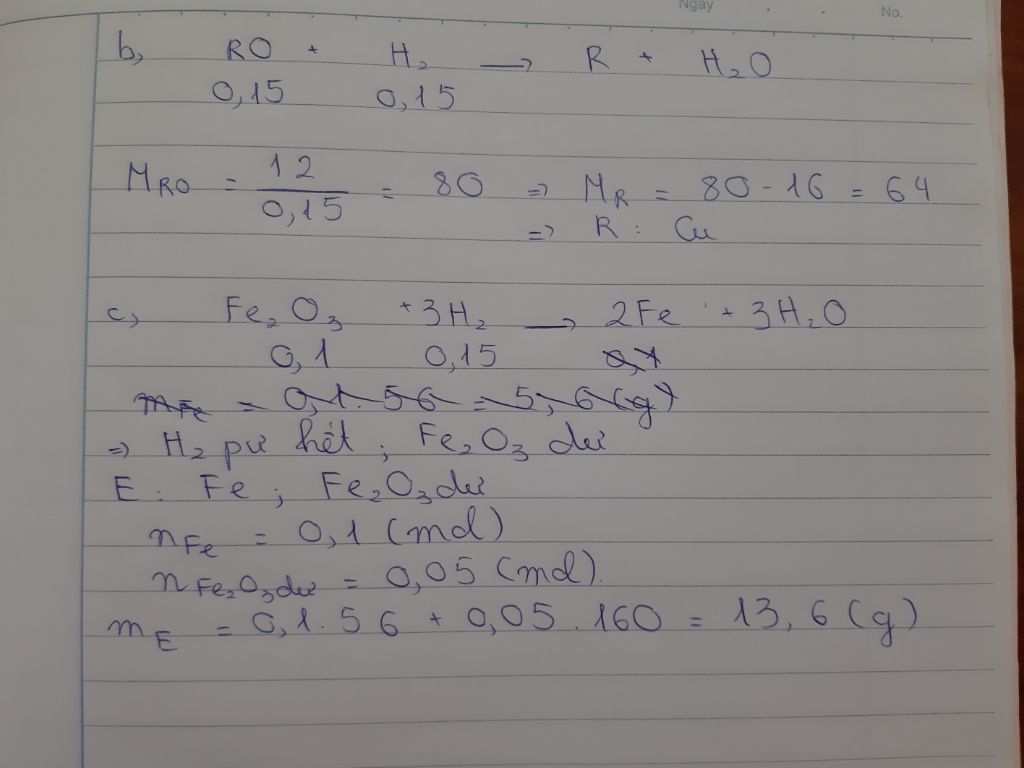 Ngày No.
b, RO + H₂ → R + H₂O
0,15 0,15
M_RO = 12/0,15 = 80 => M_R = 80 - 16 = 64
=> R : Cu
c, Fe₂O₃ + 3H₂ → 2Fe + 3H₂O
0,1 0,15 0,1
m_Fe = 0,1. 56 = 5,6 (g)
=> H₂ pư hết ; Fe₂O₃ dư
E : Fe ; Fe₂O₃ dư
n_Fe = 0,1 (mol)
n_Fe₂O₃ dư = 0,05 (mol).
m_E = 0,1. 56 + 0,05 . 160 = 13,6 (g)